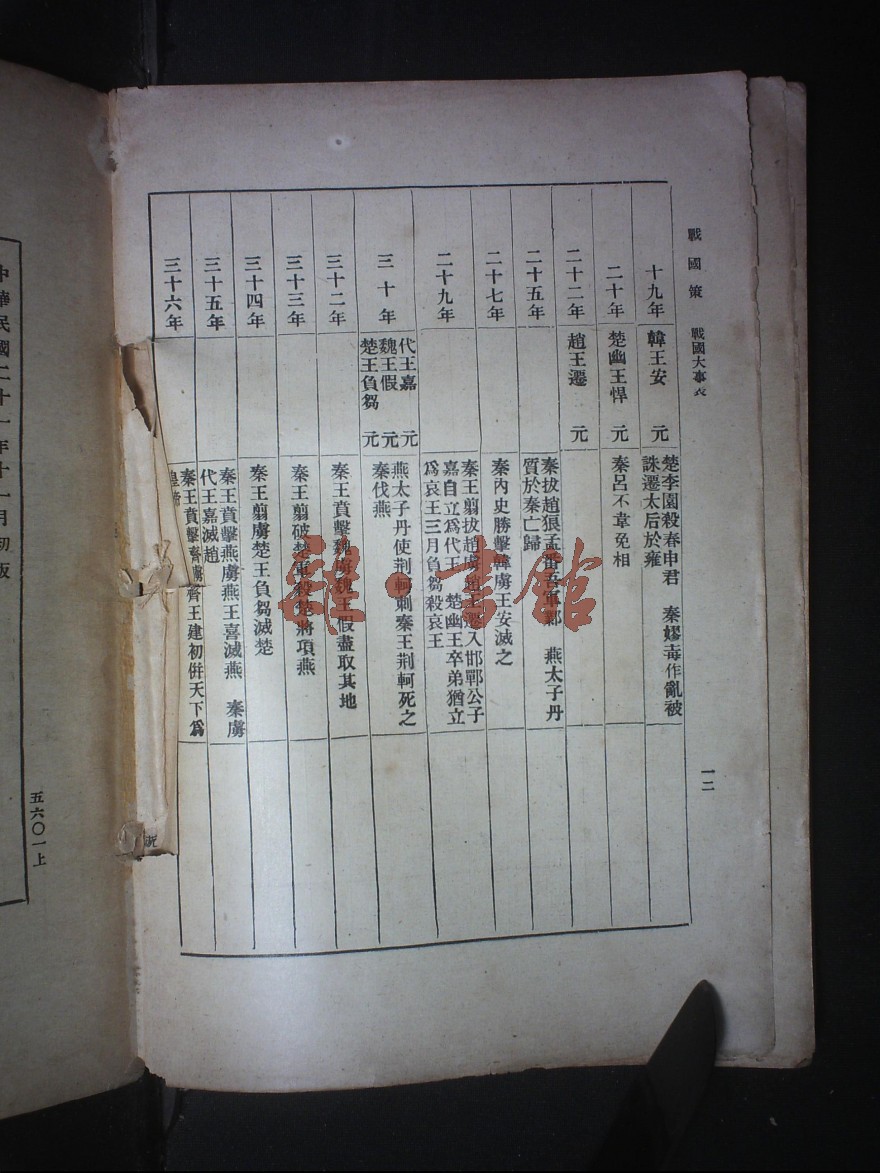 戰國策 戰國大事表
一二
十九年
韓王安 元
楚李園殺春申君 秦嫪毐作亂被
誅遷太后於雍
二十年
楚幽王悍 元
秦呂不韋免相
二十二年
趙王遷 元
二十五年
秦拔趙狼孟番吾軍鄴 燕太子丹
質於秦亡歸
二十七年
秦內史勝擊韓虜王安滅之
二十九年
秦王翦拔趙虜趙王遷入邯鄲公子
嘉自立爲代王 楚幽王卒弟猶立
爲哀王三月負芻殺哀王
三十年
代王嘉 元
魏王假 元
楚王負芻 元
燕太子丹使荆軻刺秦王荆軻死之
秦伐燕
三十二年
秦王賁擊魏虜魏王假盡取其地
三十三年
秦王翦破楚軍殺楚將項燕
三十四年
秦王翦虜楚王負芻滅楚
三十五年
秦王賁擊燕虜燕王喜滅燕 秦虜
代王嘉滅趙
三十六年
秦王賁擊齊虜齊王建初併天下爲
皇帝
中華民國二十一年十一月初版
五六〇一上
雅·書館